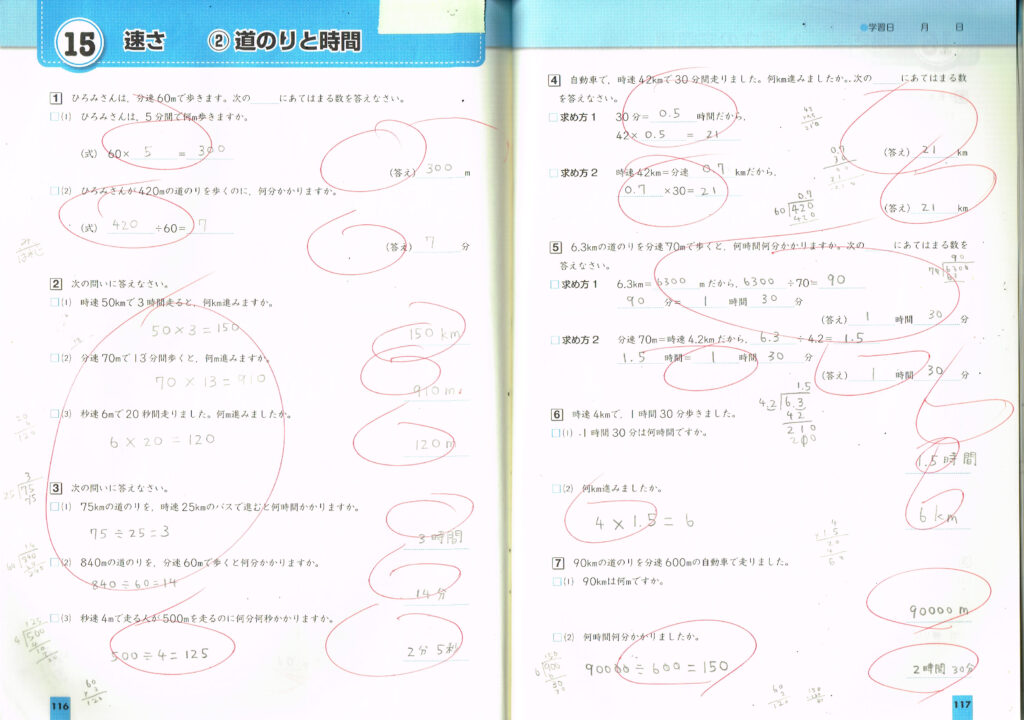 15 速さ ②道のりと時間
1 ひろみさんは，分速60mで歩きます。次の にあてはまる数を答えなさい。
(1) ひろみさんは，5分間で何m歩きますか。
(式) 60× 5 = 300
(答え) 300 m
(2) ひろみさんが420mの道のりを歩くのに，何分かかりますか。
(式) 420 ÷60= 7
(答え) 7 分
2 次の問いに答えなさい。
(1) 時速50kmで3時間走ると，何km進みますか。
50×3=150
150 km
(2) 分速70mで13分間歩くと，何m進みますか。
70×13=910
910m
(3) 秒速6mで20秒間走りました。何m進みましたか。
6×20=120
120m
3 次の問いに答えなさい。
(1) 75kmの道のりを，時速25kmのバスで進むと何時間かかりますか。
75÷25=3
3時間
(2) 840mの道のりを，分速60mで歩くと何分かかりますか。
840÷60=14
14分
(3) 秒速4mで走る人が500mを走るのに何分何秒かかりますか。
500÷4=125
2分5秒
116
学習日 月 日
4 自動車で，時速42kmで30分間走りました。何km進みましたか。次の にあてはまる数
を答えなさい。
求め方1 30分= 0.5 時間だから，
42× 0.5 = 21
(答え) 21 km
求め方2 時速42km=分速 0.7 kmだから，
0.7 ×30= 21
(答え) 21 km
0.7
60 420
420
5 6.3kmの道のりを分速70mで歩くと，何時間何分かかりますか。次の にあてはまる数を
答えなさい。
求め方1 6.3km= 6300 mだから，6300 ÷70= 90
90 分= 1 時間 30 分
(答え) 1 時間 30 分
求め方2 分速70m=時速4.2kmだから，6.3 ÷4.2= 1.5
1.5 時間= 1 時間 30 分
(答え) 1 時間 30 分
1.5
4.2 6.3
42
210
6 時速4kmで，1時間30分歩きました。
(1) 1時間30分は何時間ですか。
1.5時間
(2) 何km進みましたか。
4×1.5=6
6km
7 90kmの道のりを分速600mの自動車で走りました。
(1) 90kmは何mですか。
90000m
(2) 何時間何分かかりましたか。
90000÷600=150
2時間30分
117